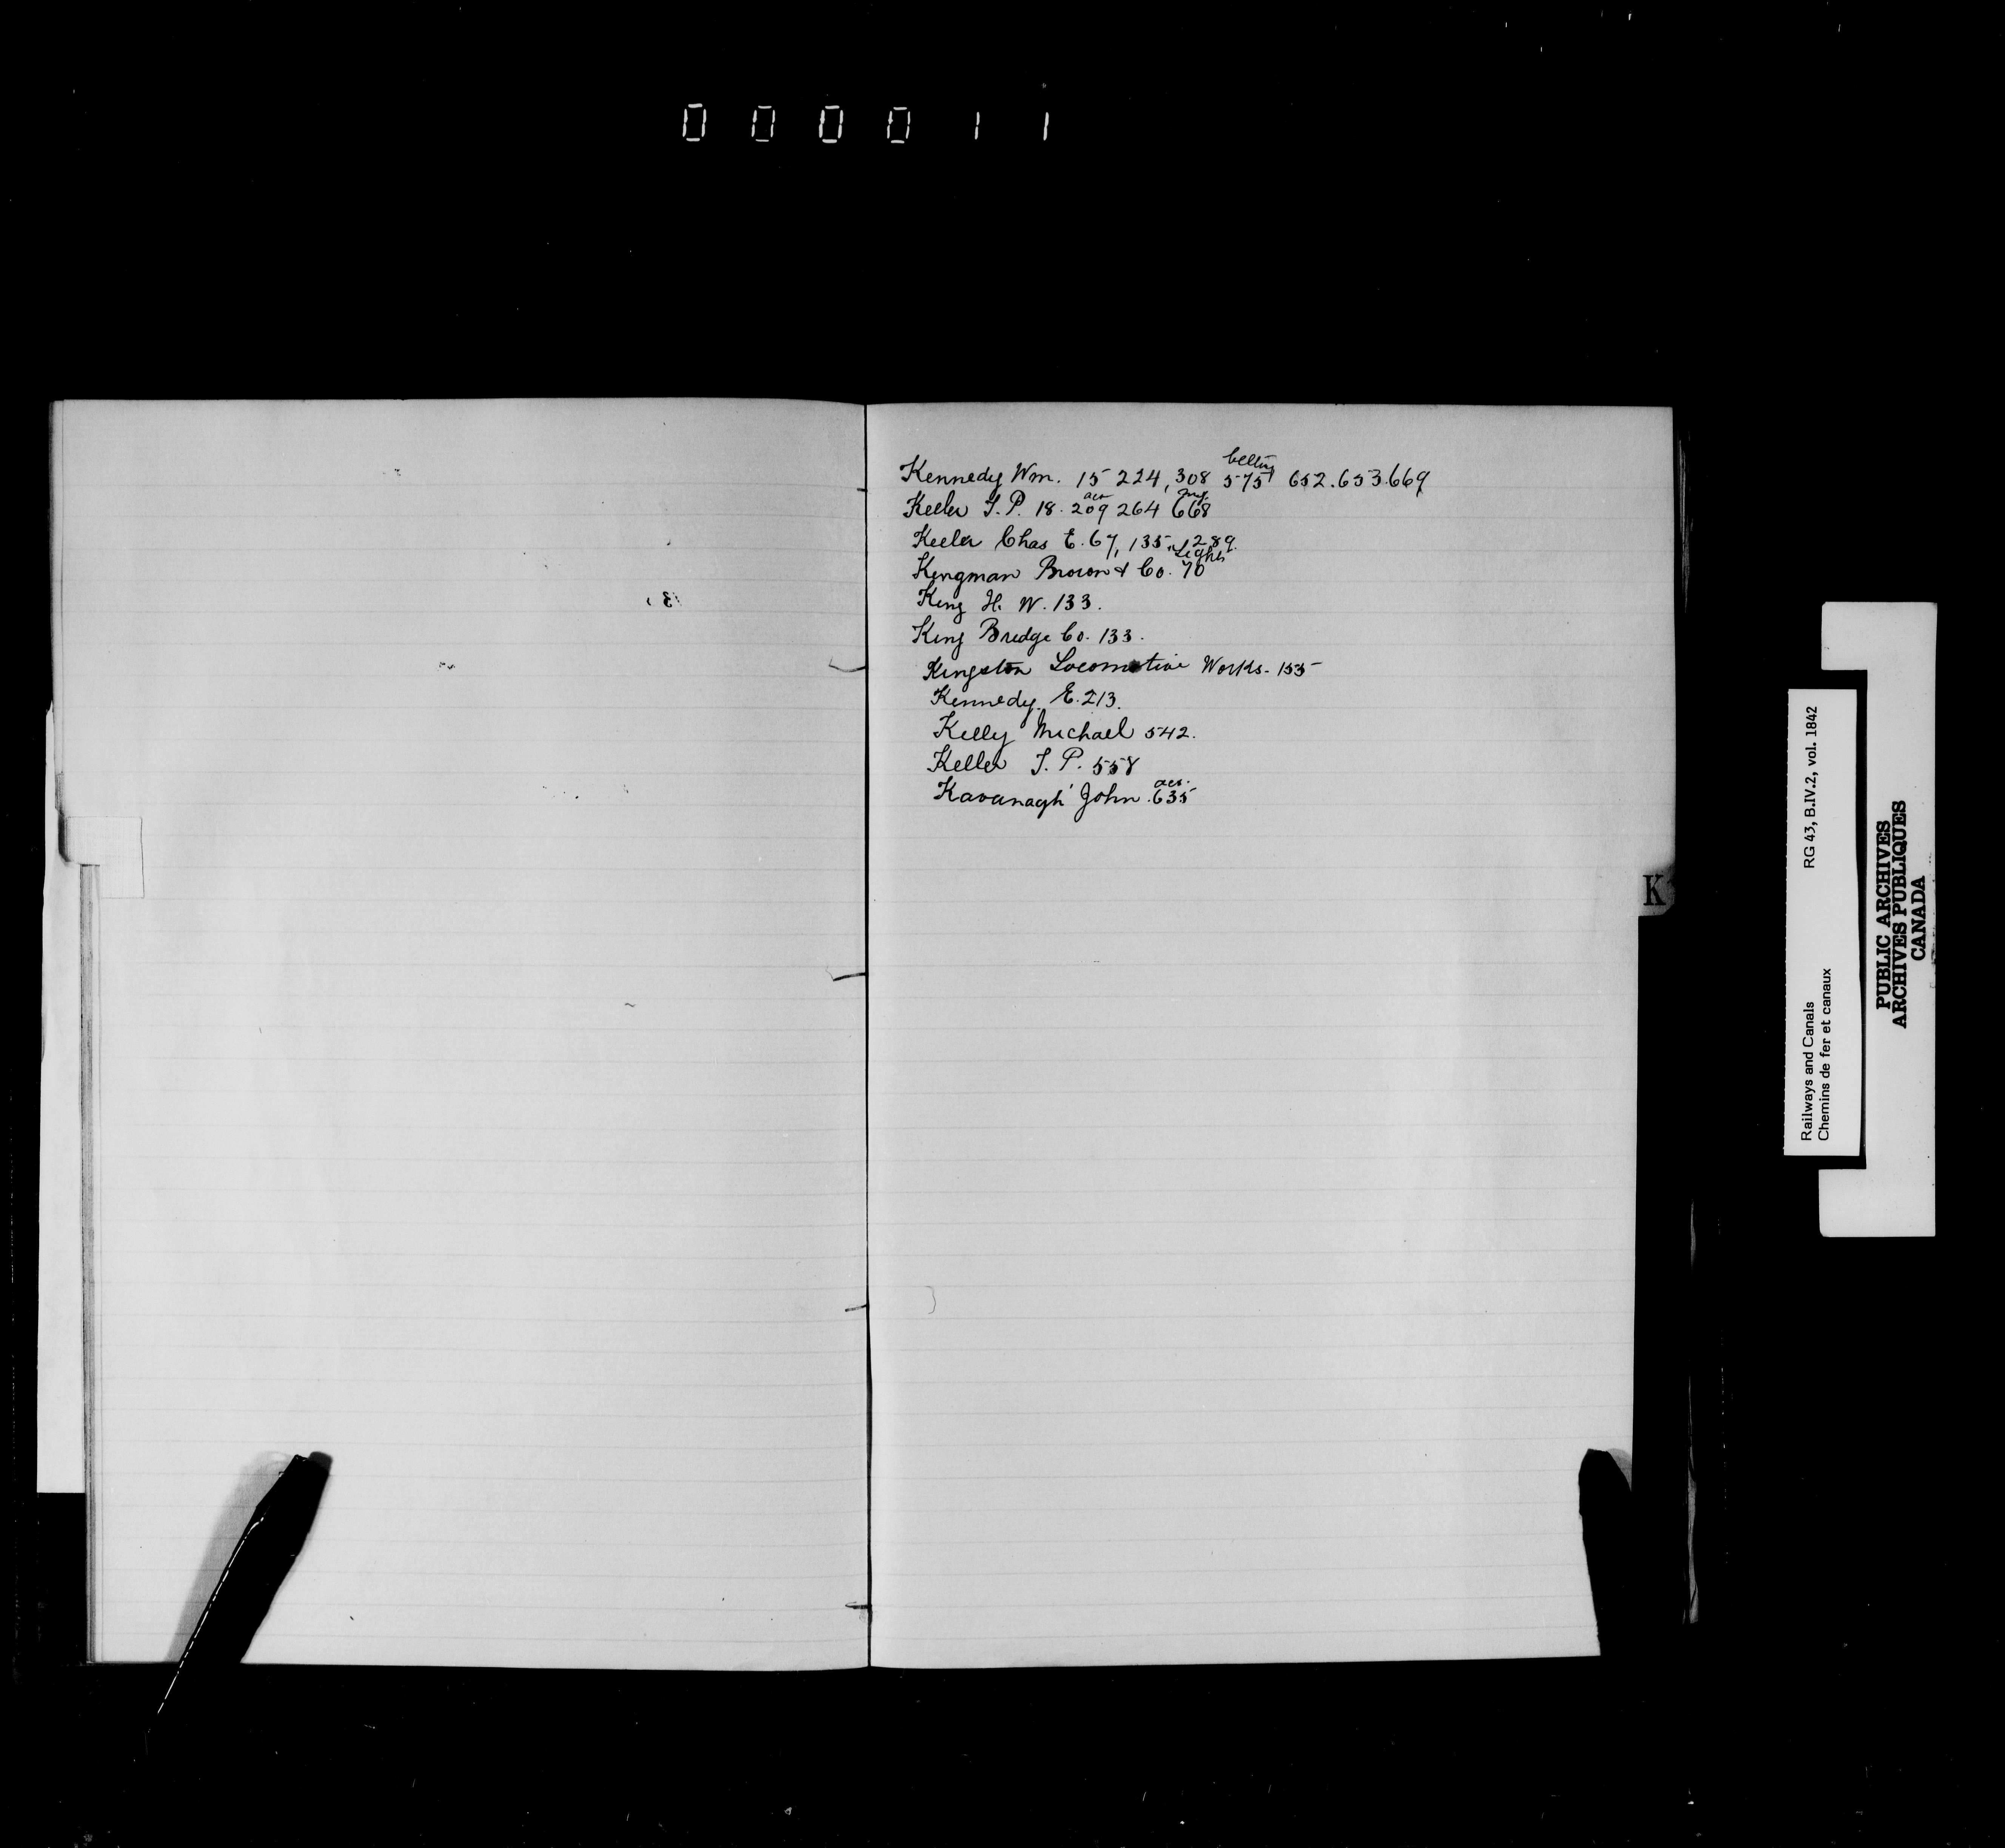 000011
belting
Kennedy Wm. 15 224, 308 575 652. 653. 669
acc
Keller J. P. 18. 209 264 668
Keeler Chas E. 67, 135, 289.
Lights
Kingman Brown & Co. 70
King H. W. 133.
King Bridge Co. 133.
Kingston Locomotive Works - 155
Kennedy E. 213.
Kelly Michael 542.
Keller J. P. 558
acc.
Kavanagh John. 635
K
Railways and Canals RG 43, B.IV.2, vol. 1842
Chemins de fer et canaux
PUBLIC ARCHIVES
ARCHIVES PUBLIQUES
CANADA